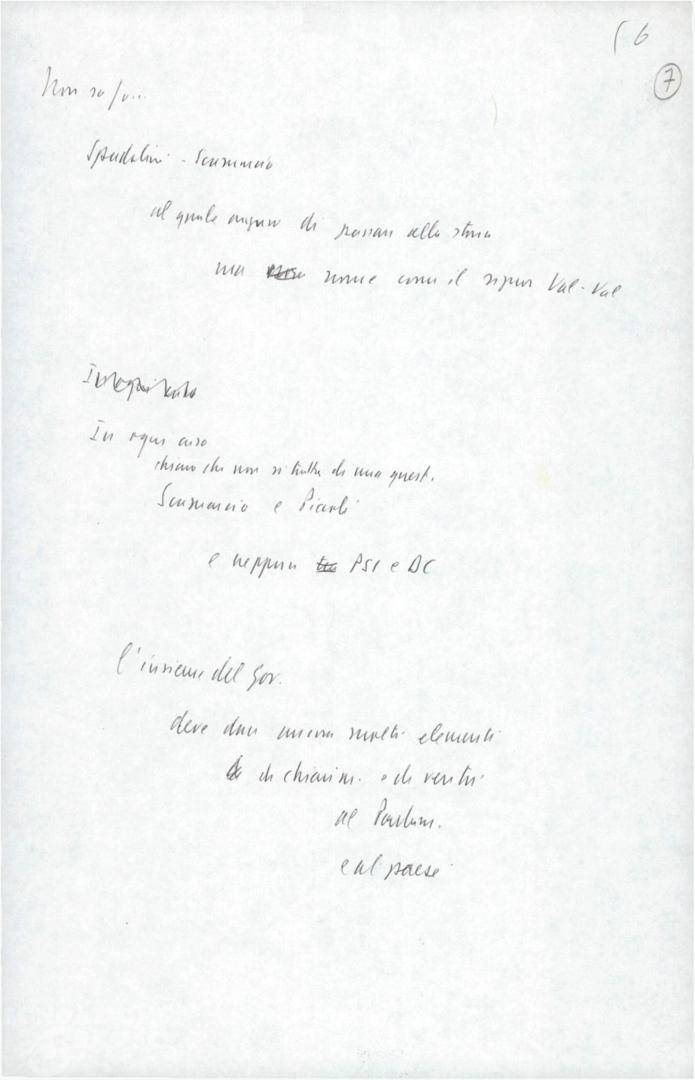 56
7
Non so se...
Spadolini - Scamarcio
al quale auguro di passare alla storia
ma non come il signor Val-Val
In ogni caso
chiaro che non si tratta di una quest.
Scamarcio e Piccoli
e neppure tra PSI e DC
l'insieme del Gov.
deve dare ancora molti elementi
di chiarim. e di verità
al Parlam.
e al paese